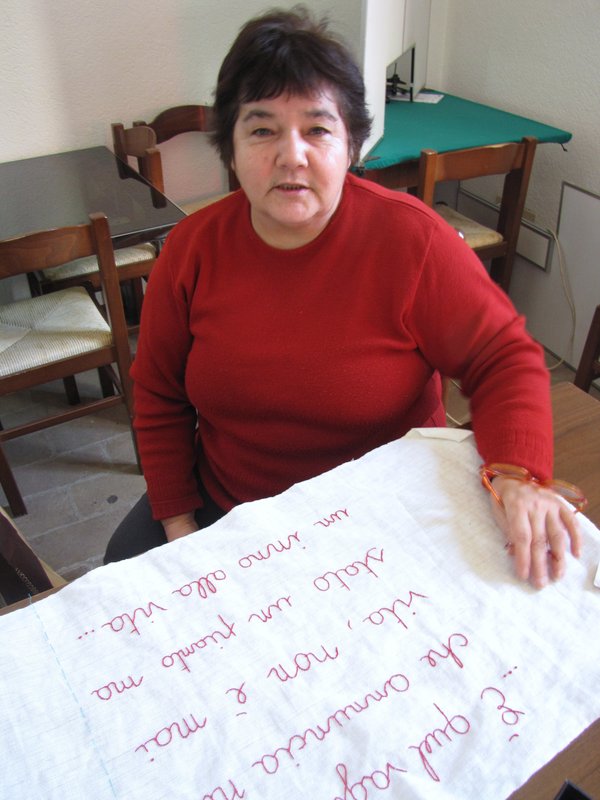 ... È quel
che annuncia
vita, non è mai
stato un pianto ma
un inno alla vita...